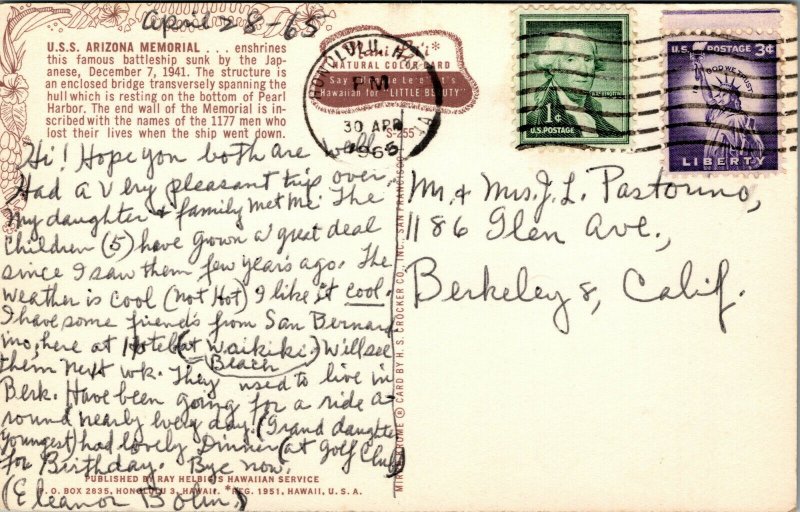 April 28-65
U.S.S. ARIZONA MEMORIAL . . . enshrines
this famous battleship sunk by the Jap-
anese, December 7, 1941. The structure is
an enclosed bridge transversely spanning the
hull which is resting on the bottom of Pearl
Harbor. The end wall of the Memorial is in-
scribed with the names of the 1177 men who
lost their lives when the ship went down.
NATURAL COLOR CARD
Hawaiian for "LITTLE BEAUTY"
HONOLULU, HAWAII
PM
30 APR
1965
S-255
1¢
U.S. POSTAGE
U.S. POSTAGE 3¢
IN GOD WE TRUST
LIBERTY
Hi! Hope you both are well.
Had a very pleasant trip over,
my daughter & family met me. The
children (5) have grown a great deal
since I saw them few years ago. The
weather is cool (not Hot) I like it cool.
I have some friends from San Bernard
ino, here at Hotel (at Waikiki.) Will see
Beach
them next wk. They used to live in
Berk. Have been going for a ride a-
round nearly every day. (Grand daughter
youngest) had lovely Dinner (at Golf Club)
for Birthday. Bye now.
(Eleanor Bohn)
PUBLISHED BY RAY HELBIG'S HAWAIIAN SERVICE
P.O. BOX 2835, HONOLULU 3, HAWAII. *REG. 1951, HAWAII, U.S.A.
MIRRO-KROME ® CARD BY H. S. CROCKER CO., INC., SAN FRANCISCO
Mr. & Mrs. J. L. Pastorino,
1186 Glen Ave.,
Berkeley 8, Calif.